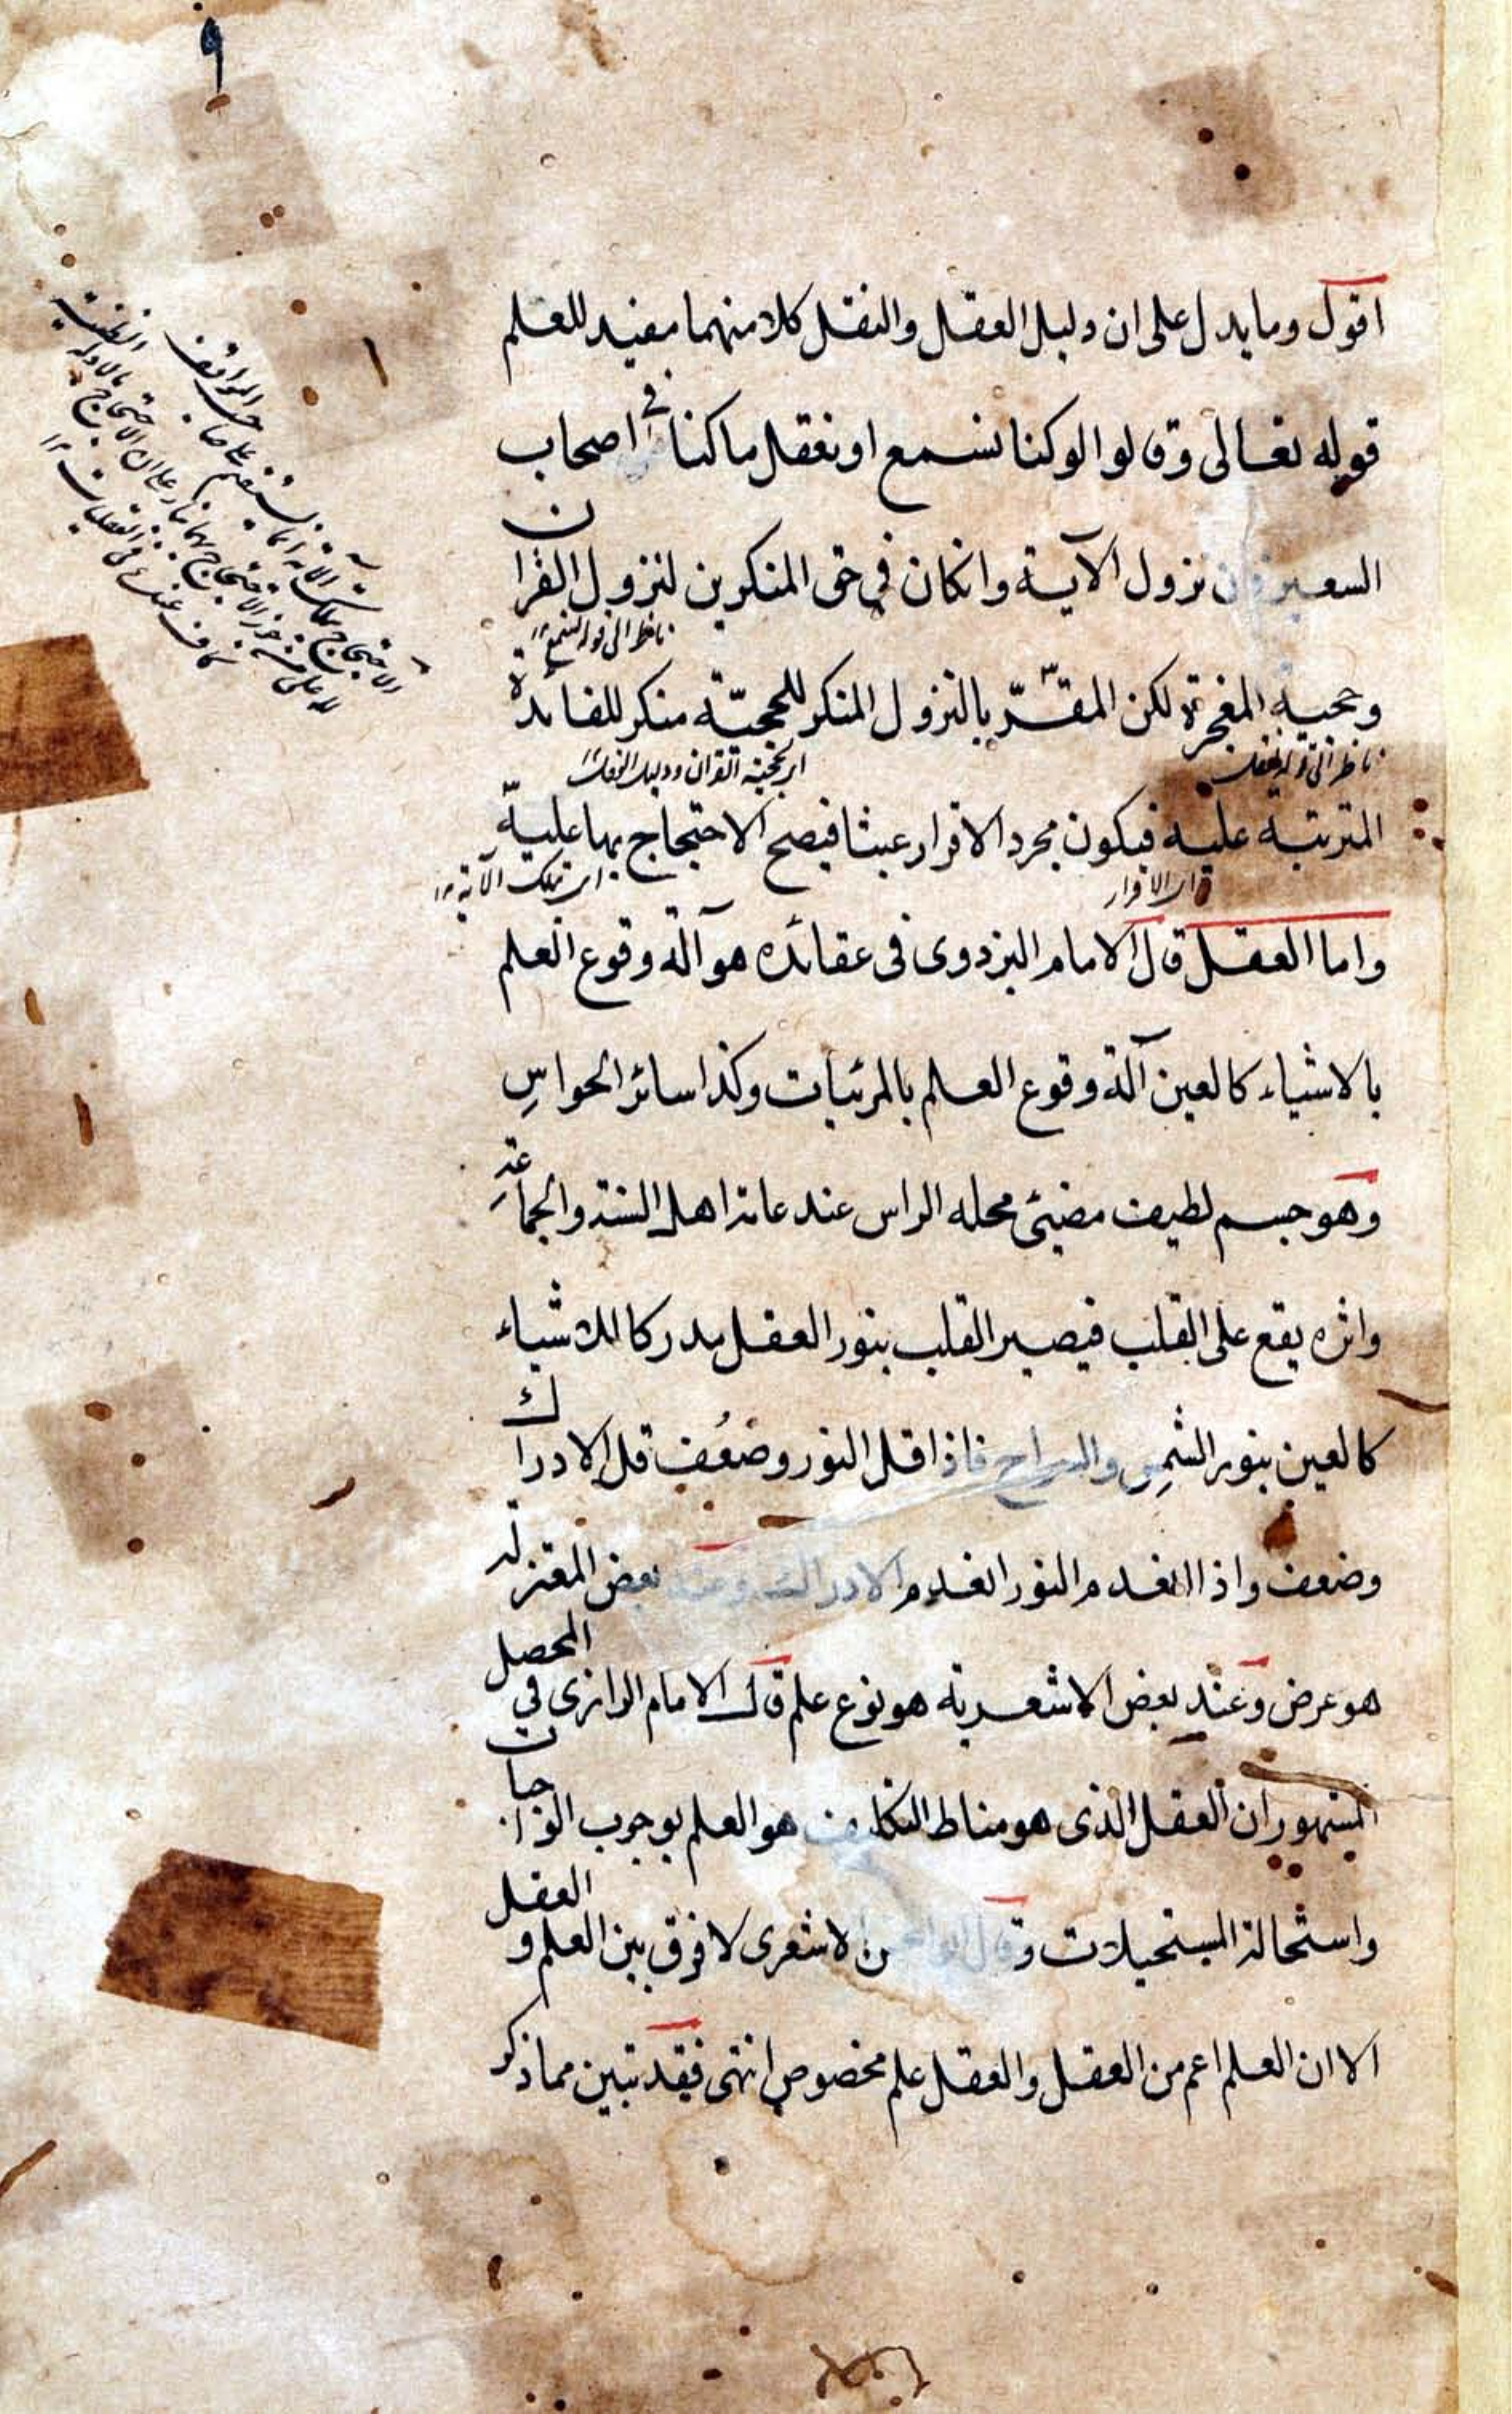 ٩
اقول وما يدل على ان دليل العقل والنقل كلا منهما مفيد للعلم
قوله تعالى وقالوا لوكنا نسمع او نعقل ماكنا فى اصحاب
السعير فان نزول الآية وانكان فى حق المنكرين لنزول القران
ناظر الى قوله نسمع ١٢
وحجية المعجزة لكن المقرّ بالنزول المنكر للحجيّة منكر للفائدة
ناظر الى قوله نعقل
اى بحجية القران ودليل العقل ١٢
المترتبة عليه فيكون مجرد الاقرار عبثا فيصح الاحتجاج بها عليه
اى الاقرار
اى بتلك الآية ١٢
واما العقل قال الامام البزدوى فى عقائده هو آلة وقوع العلم
بالاشياء كالعين آلة وقوع العلم بالمرئيات وكذا سائر الحواسِ
وهو جسم لطيف مضيئ محله الراس عند عامة اهل السنة والجماعة
واثره يقع على القلب فيصير القلب بنور العقل مدركا للاشياء
كالعين بنور الشمس والسراج فاذا قل النور وضعُف قل الادراك
وضعف واذا انعدم النور انعدم الادراك وعند بعض المعتزلة
هو عرض وعند بعض الاشعرية هو نوع علم قال الامام الرازى فى المحصل
المشهور ان العقل الذى هو مناط التكليف هو العلم بوجوب الواجبات
واستحالة المستحيلات وقال ابو الحسن الاشعرى لا فرق بين العلم والعقل
الا ان العلم اعم من العقل والعقل علم مخصوص انتهى فقد تبين مما ذكر
الاحتجاج بتلك الآية انما يستقيم على صاحب المواقف